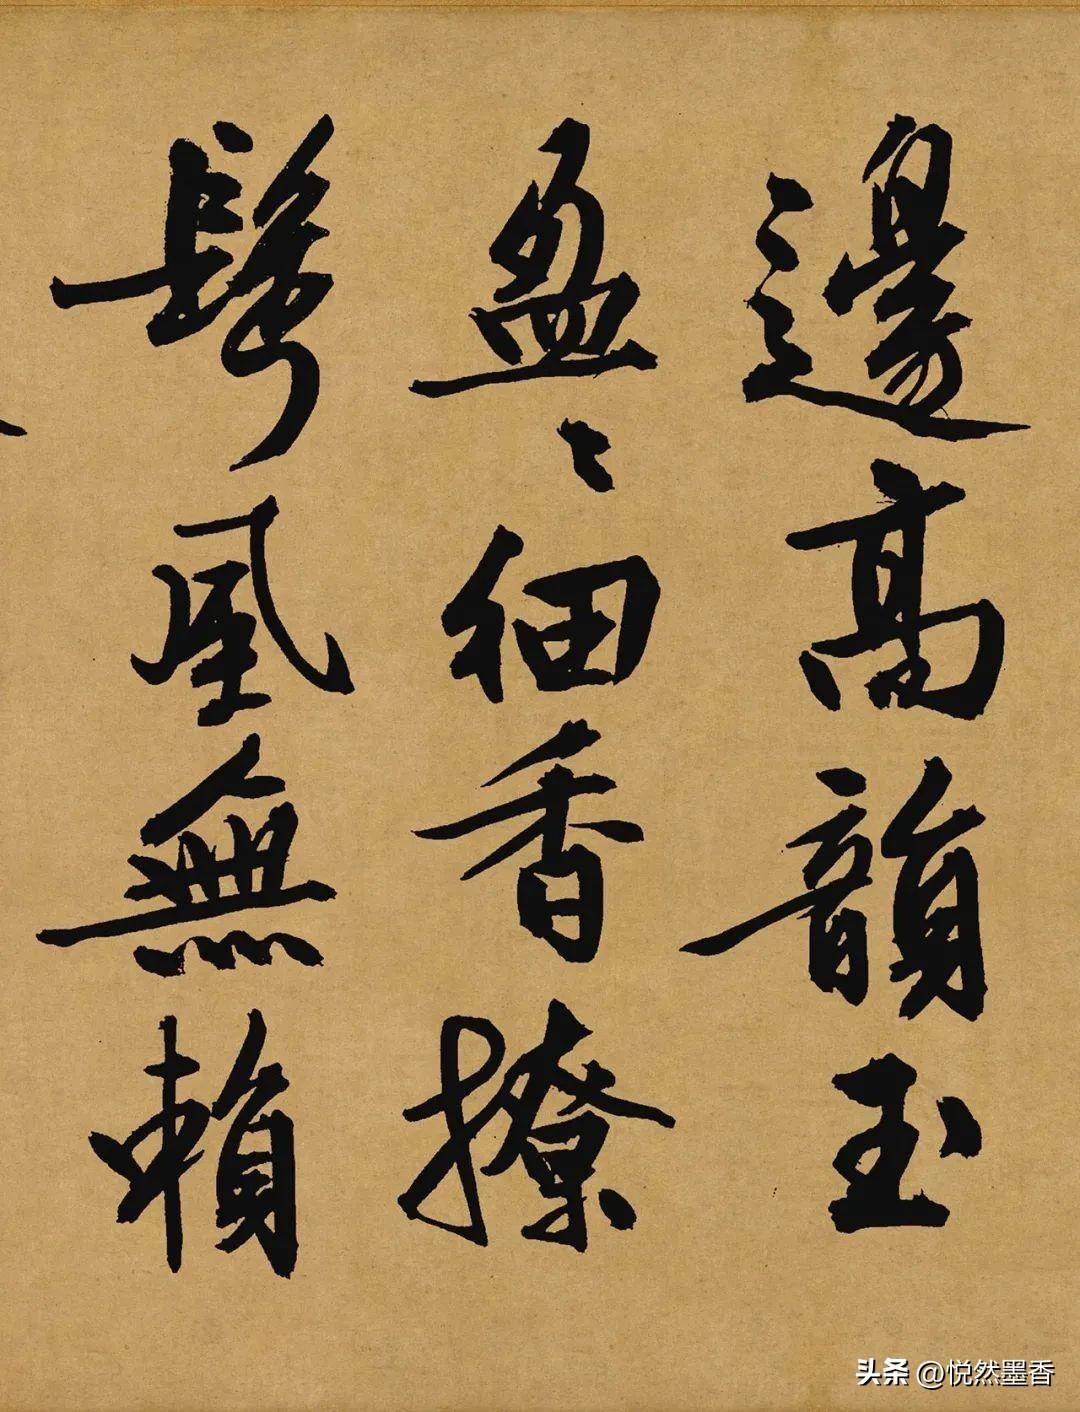 邊高韻玉
盈〻細香撩
鬢風無賴
头条 @悦然墨香